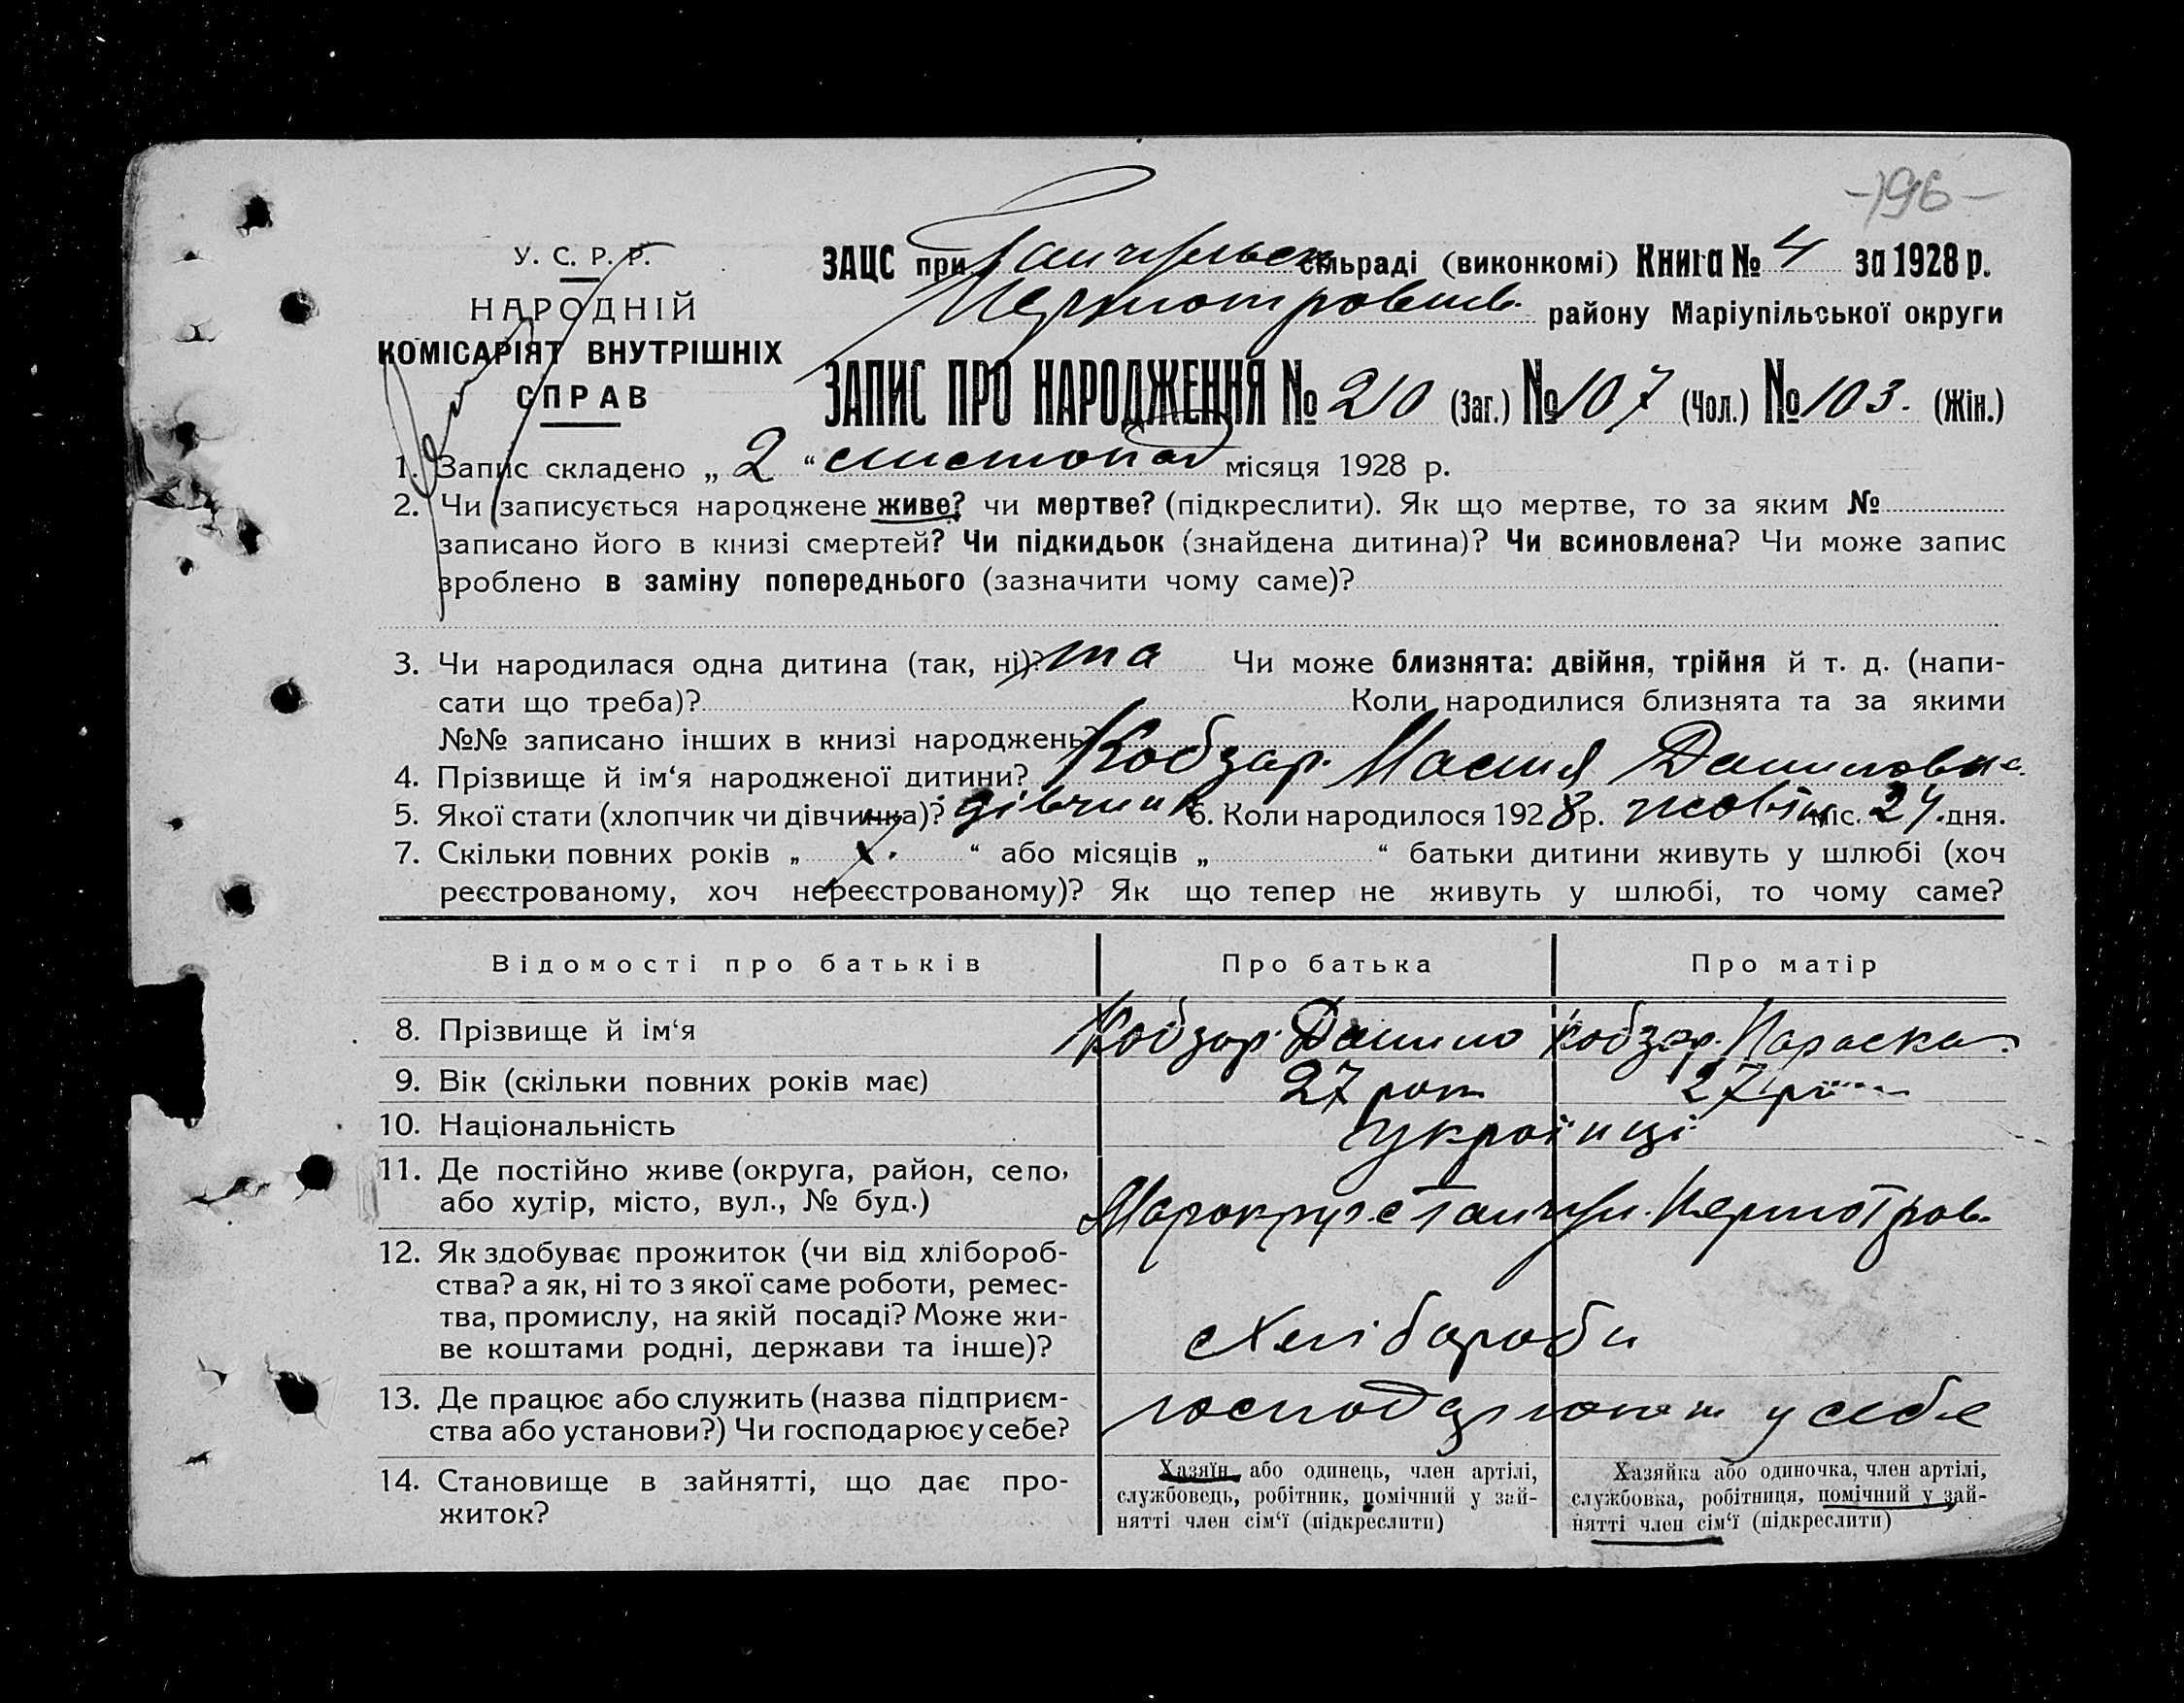 -196-
У. С. Р. Р.
НАРОДНІЙ
КОМІСАРІЯТ ВНУТРІШНІХ
СПРАВ
ЗАЦС при сільраді (виконкомі) Книга № 4 за 1928 р.
району Маріупільської округи
ЗАПИС ПРО НАРОДЖЕННЯ № 210 (Заг.) № 107 (Чол.) № 103. (Жін.)
1. Запис складено „ 2 “ листопад місяця 1928 р.
2. Чи записується народжене живе? чи мертве? (підкреслити). Як що мертве, то за яким №
записано його в книзі смертей? Чи підкидьок (знайдена дитина)? Чи всиновлена? Чи може запис
зроблено в заміну попереднього (зазначити чому саме)?
3. Чи народилася одна дитина (так, ні)? та Чи може близнята: двійня, трійня й т. д. (напи-
сати що треба)? Коли народилися близнята та за якими
№№ записано інших в книзі народжень?
4. Прізвище й ім‘я народженої дитини? Кобзар. Даниловна
5. Якої стати (хлопчик чи дівчинка)? дівчинк 6. Коли народилося 1928 р. жовтн міс. 24. дня.
7. Скільки повних років „ х. “ або місяців „ “ батьки дитини живуть у шлюбі (хоч
реєстрованому, хоч нереєстрованому)? Як що тепер не живуть у шлюбі, то чому саме?
Відомості про батьків Про батька Про матір
8. Прізвище й ім‘я Кобзар Данило Кобзар. Параска.
9. Вік (скільки повних років має) 27 рок 27 рок
10. Національність українці
11. Де постійно живе (округа, район, село,
або хутір, місто, вул., № буд.)
12. Як здобуває прожиток (чи від хлібороб-
ства? а як, ні то з якої саме роботи, ремес-
тва, промислу, на якій посаді? Може жи-
ве коштами родні, держави та інше)? Хлібароби
13. Де працює або служить (назва підприєм-
ства або установи?) Чи господарює у себе? у себе
14. Становище в зайнятті, що дає про-
житок?
Хазяїн або одинець, член артілі,
службовець, робітник, помічний у зай-
нятті член сім‘ї (підкреслити)
Хазяйка або одиночка, член артілі,
службовка, робітниця, помічний у зай-
нятті член сім‘ї (підкреслити)